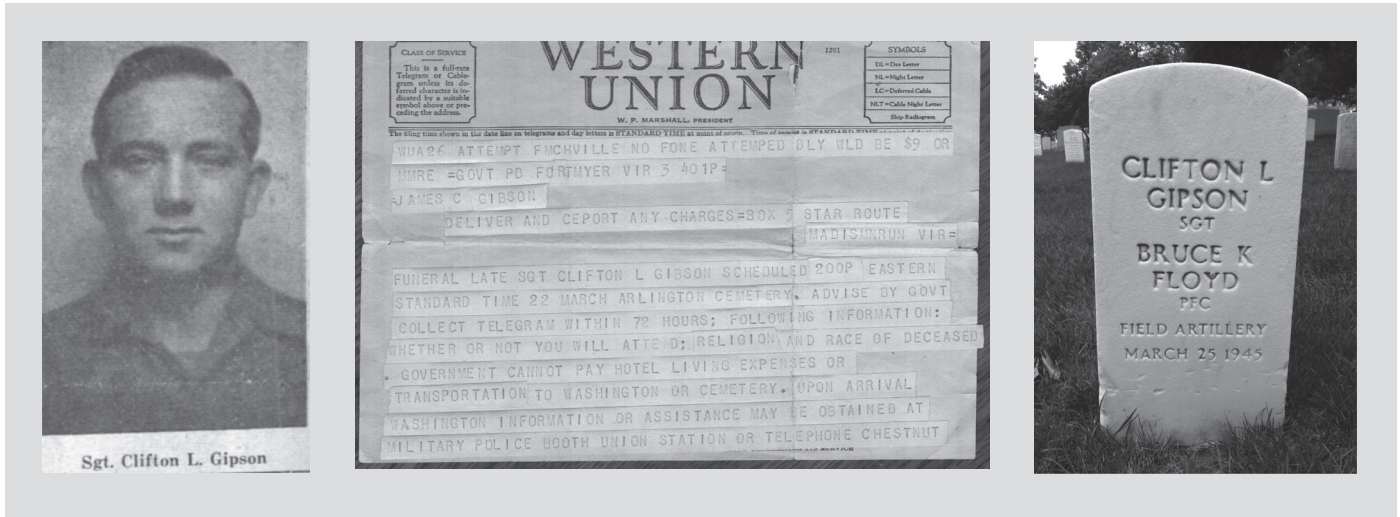 Sgt. Clifton L. Gipson
CLASS OF SERVICE
This is a full-rate
Telegram or Cable-
gram unless its de-
ferred character is in-
dicated by a suitable
symbol above or pre-
ceding the address.
WESTERN
UNION
1201
W. P. MARSHALL, PRESIDENT
SYMBOLS
DL=Day Letter
NL=Night Letter
LC=Deferred Cable
NLT=Cable Night Letter
Ship Radiogram
The filing time shown in the date line on telegrams and day letters is STANDARD TIME at point of origin. Time of receipt is STANDARD TIME at point of
WUA26 ATTEMPT FMCHVILLE NO FONE ATTEMPED DLY WLD BE $9 OR
MMRE =GOVT PD FORTMYER VIR 3 401P=
JAMES C GIBSON
DELIVER AND CEPORT ANY CHARGES=BOX 5 STAR ROUTE
MADISMNRUN VIR=
FUNERAL LATE SGT CLIFTON L GIBSON SCHEDULED 200P EASTERN
STANDARD TIME 22 MARCH ARLINGTON CEMETERY. ADVISE BY GOVT
COLLECT TELEGRAM WITHIN 72 HOURS; FOLLOWING INFORMATION:
WHETHER OR NOT YOU WILL ATTEND; RELIGION AND RACE OF DECEASED
. GOVERNMENT CANNOT PAY HOTEL LIVING EXPENSES OR
TRANSPORTATION TO WASHINGTON OR CEMETERY. UPON ARRIVAL
WASHINGTON INFORMATION OR ASSISTANCE MAY BE OBTAINED AT
MILITARY POLICE BOOTH UNION STATION OR TELEPHONE CHESTNUT
CLIFTON L
GIPSON
SGT
BRUCE K
FLOYD
PFC
FIELD ARTILLERY
MARCH 25 1945